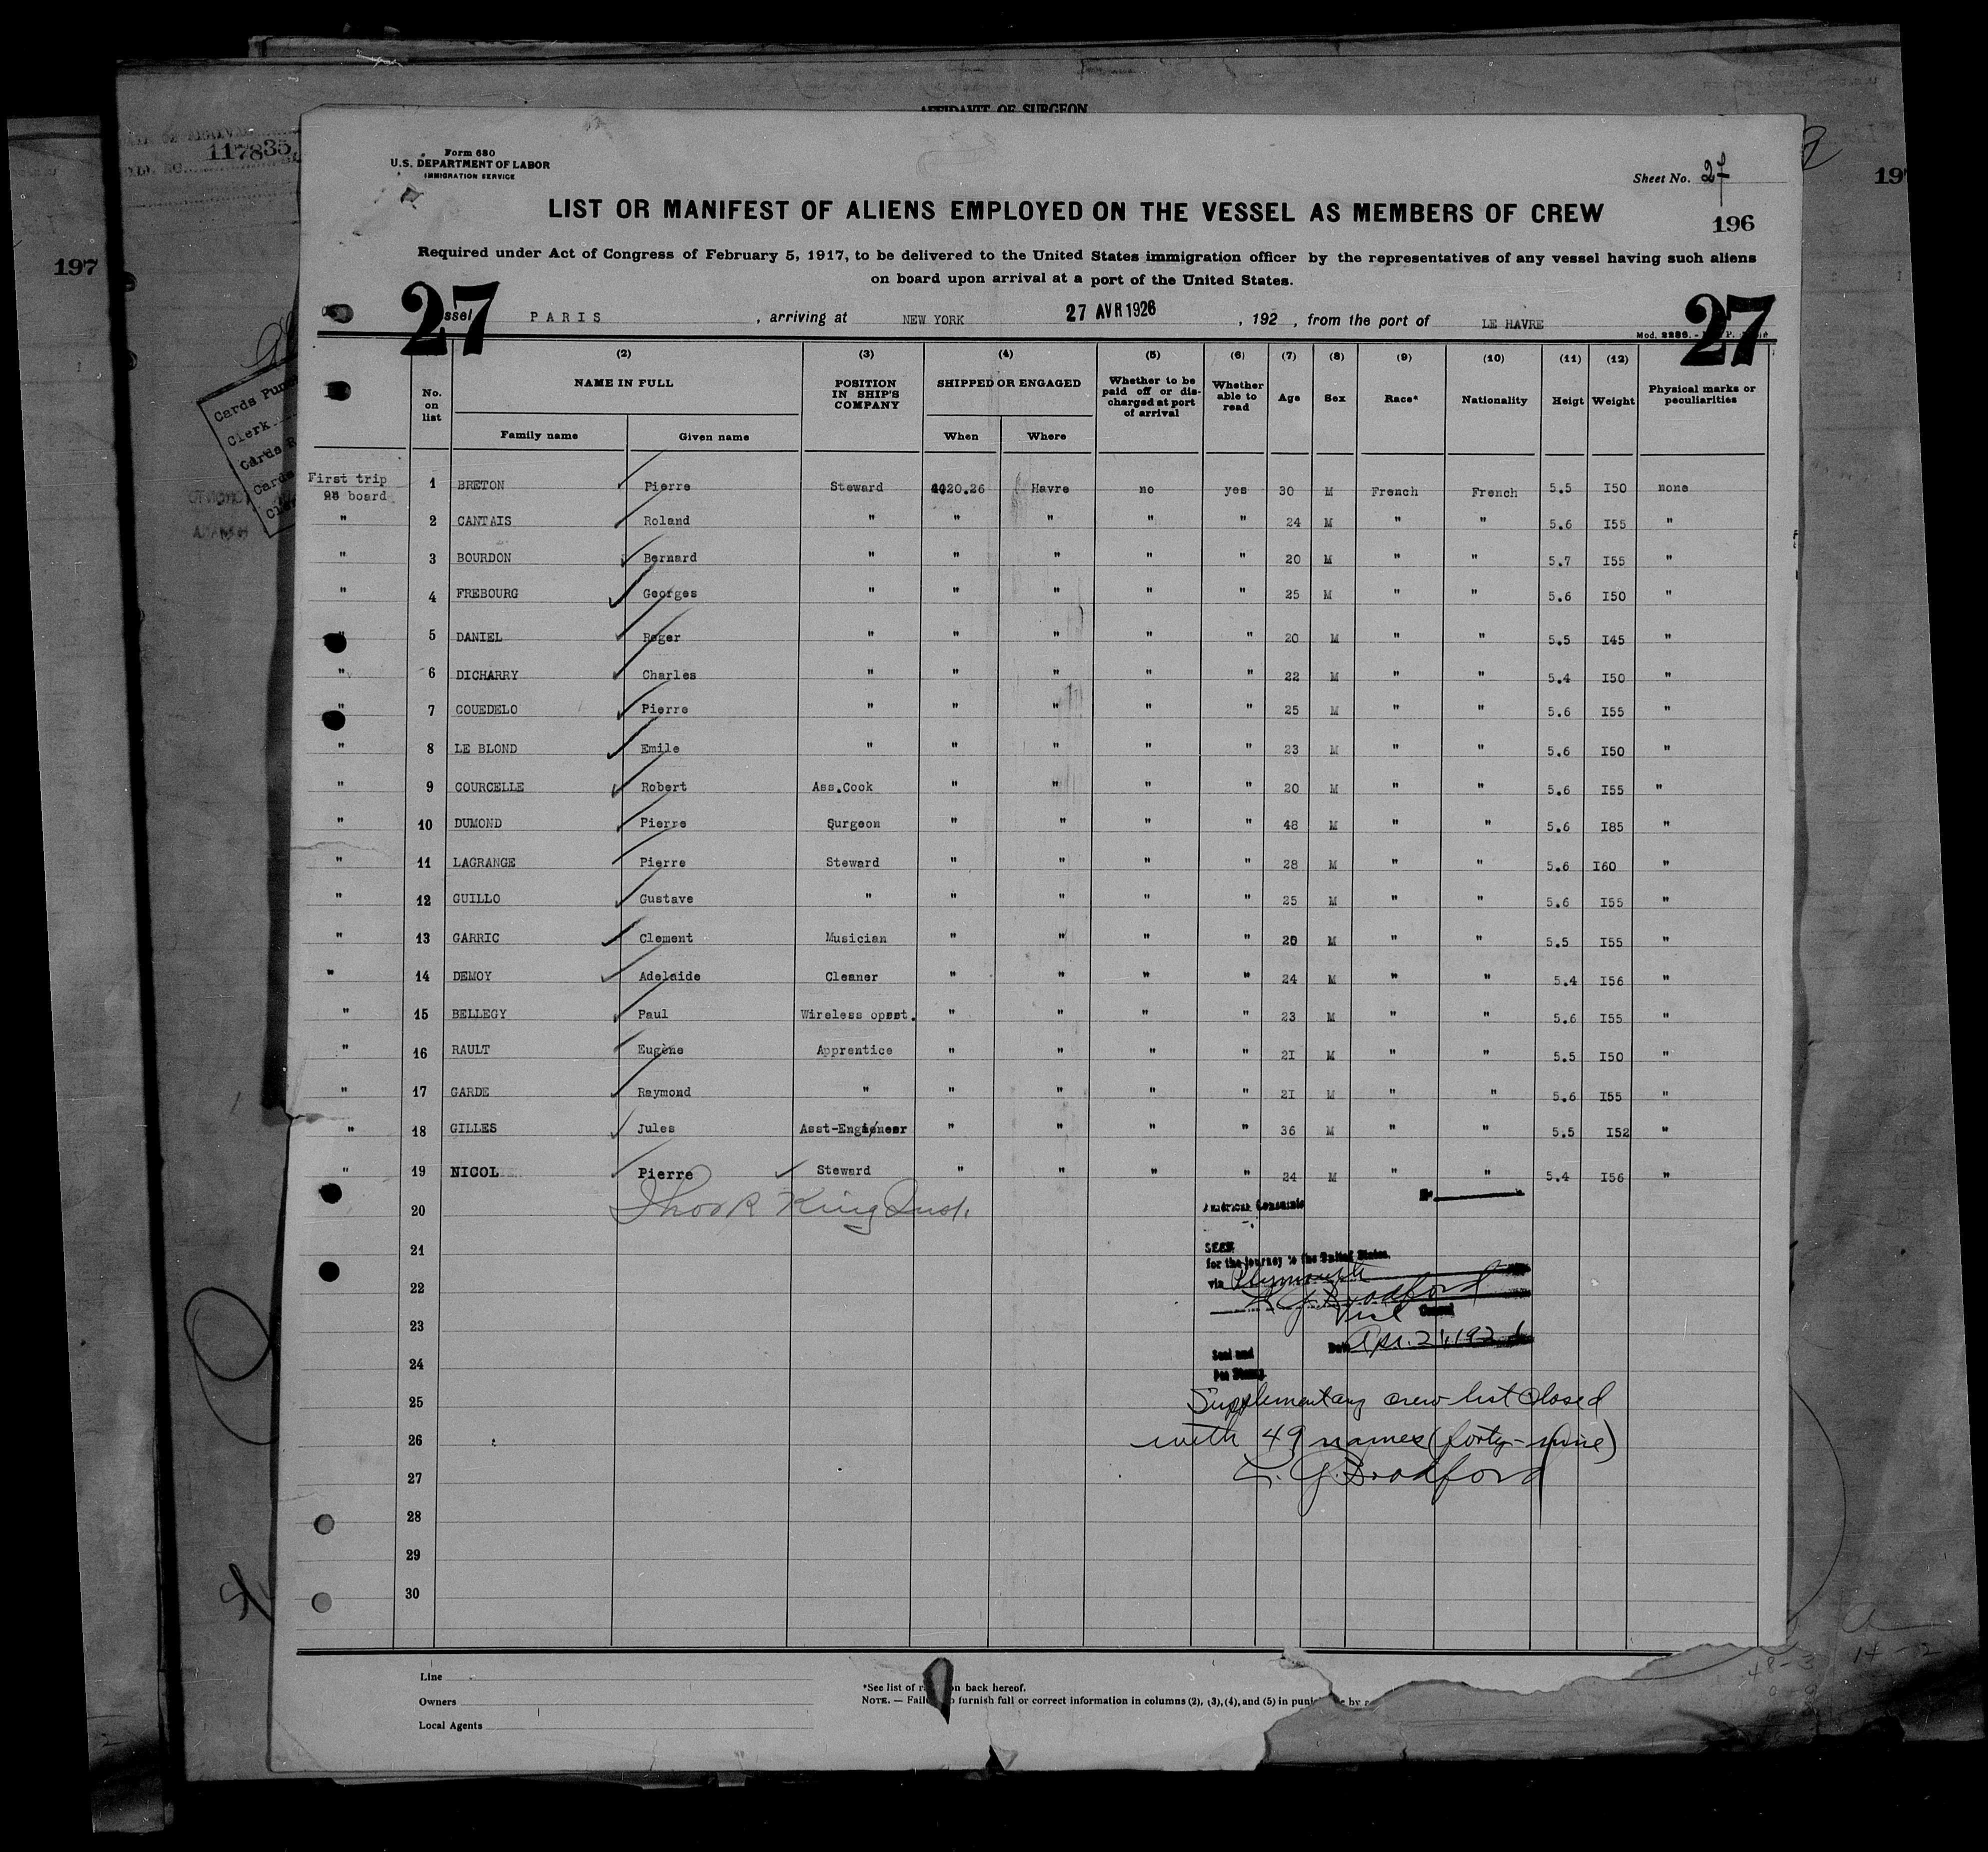 AFFIDAVIT OF SURGEON
117835
197
Form 680
U.S. DEPARTMENT OF LABOR
IMMIGRATION SERVICE
Sheet No. 27
LIST OR MANIFEST OF ALIENS EMPLOYED ON THE VESSEL AS MEMBERS OF CREW
196
Required under Act of Congress of February 5, 1917, to be delivered to the United States immigration officer by the representatives of any vessel having such aliens
on board upon arrival at a port of the United States.
27 ssel PARIS , arriving at NEW YORK 27 AVR 1926 , 192 , from the port of LE HAVRE 27
Mod. 2286.
(2) (3) (4) (5) (6) (7) (8) (9) (10) (11) (12)
No. on list NAME IN FULL POSITION IN SHIP'S COMPANY SHIPPED OR ENGAGED Whether to be paid off or discharged at port of arrival Whether able to read Age Sex Race* Nationality Heigt Weight Physical marks or peculiarities
Family name Given name When Where
First trip on board 1 BRETON Pierre Steward 4020.26 Havre no yes 30 M French French 5.5 I50 none
" 2 CANTAIS Roland " " " " " 24 M " " 5.6 I55 "
" 3 BOURDON Bernard " " " " " 20 M " " 5.7 I55 "
" 4 FREBOURG Georges " " " " " 25 M " " 5.6 I50 "
" 5 DANIEL Roger " " " " " 20 M " " 5.5 I45 "
" 6 DICHARRY Charles " " " " " 22 M " " 5.4 I50 "
" 7 COUEDELO Pierre " " " " " 25 M " " 5.6 I55 "
" 8 LE BLOND Emile " " " " " 23 M " " 5.6 I50 "
" 9 COURCELLE Robert Ass.Cook " " " " 20 M " " 5.6 I55 "
" 10 DUMOND Pierre Surgeon " " " " 48 M " " 5.6 I85 "
" 11 LAGRANGE Pierre Steward " " " " 28 M " " 5.6 I60 "
" 12 GUILLO Gustave " " " " " 25 M " " 5.6 I55 "
" 13 GARRIC Clement Musician " " " " 20 M " " 5.5 I55 "
" 14 DEMOY Adelaide Cleaner " " " " 24 M " " 5.4 I56 "
" 15 BELLEGY Paul Wireless " " " " 23 M " " 5.6 I55 "
" 16 RAULT Eugène Apprentice " " " " 2I M " " 5.5 I50 "
" 17 GARDE Raymond " " " " " 2I M " " 5.6 I55 "
" 18 GILLES Jules Asst-Engineer " " " " 36 M " " 5.5 I52 "
" 19 NICOL Pierre Steward " " " " 24 M " " 5.4 I56 "
20
American Consulate
21
SEEN
for the journey to the United States.
22
via Plymouth
G. Bradford
Vice Consul
23
Date Apr. 21, 1926
24
Seal and
Fee Stamp
25 Supplementary crew list closed
26 with 49 names (forty-nine)
27 G. Bradford
28
29
30
Line
Owners
Local Agents
*See list of on back hereof.
NOTE. — to furnish full or correct information in columns (2), (3), (4), and (5) in by